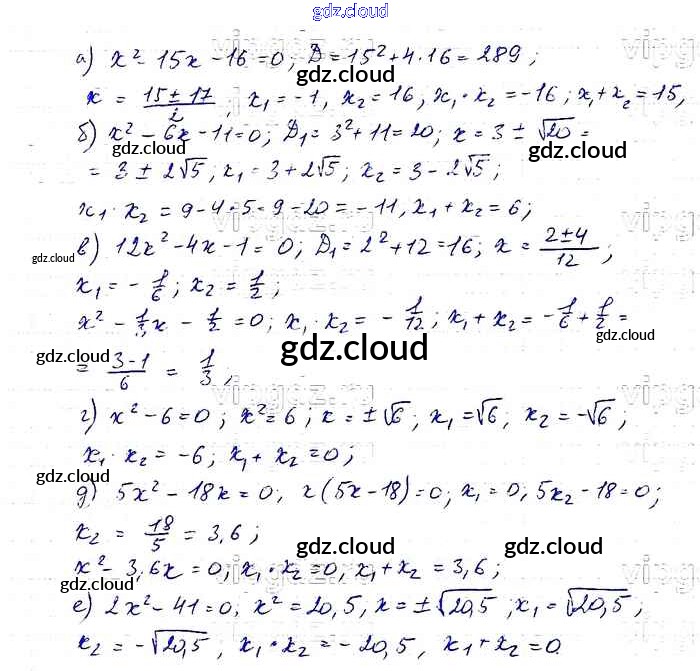 gdz.cloud
а) x² - 15x - 16 = 0; D = 15² + 4·16 = 289;
gdz.cloud
x = (15 ± 17)/2, x₁ = -1, x₂ = 16, x₁·x₂ = -16; x₁ + x₂ = 15,
б) x² - 6x - 11 = 0; D₁ = 3² + 11 = 20; x = 3 ± √20 =
gdz.cloud gdz.cloud
= 3 ± 2√5; x₁ = 3 + 2√5; x₂ = 3 - 2√5;
x₁·x₂ = 9 - 4·5 = 9 - 20 = -11, x₁ + x₂ = 6;
в) 12x² - 4x - 1 = 0; D₁ = 2² + 12 = 16; x = (2 ± 4)/12;
gdz.cloud
x₁ = -1/6; x₂ = 1/2;
x² - 1/3x - 1/2 = 0; x₁·x₂ = -1/12; x₁ + x₂ = -1/6 + 1/2 =
gdz.cloud gdz.cloud gdz.cloud
= (3-1)/6 = 1/3;
г) x² - 6 = 0; x² = 6; x = ±√6; x₁ = √6, x₂ = -√6;
x₁·x₂ = -6; x₁ + x₂ = 0;
gdz.cloud gdz.cloud
д) 5x² - 18x = 0, x(5x - 18) = 0; x₁ = 0, 5x₂ - 18 = 0;
x₂ = 18/5 = 3,6;
gdz.cloud gdz.cloud
x² - 3,6x = 0; x₁·x₂ = 0, x₁ + x₂ = 3,6;
gdz.cloud
е) 2x² - 41 = 0; x² = 20,5, x = ±√20,5; x₁ = √20,5;
x₂ = -√20,5; x₁·x₂ = -20,5, x₁ + x₂ = 0.
gdz.cloud